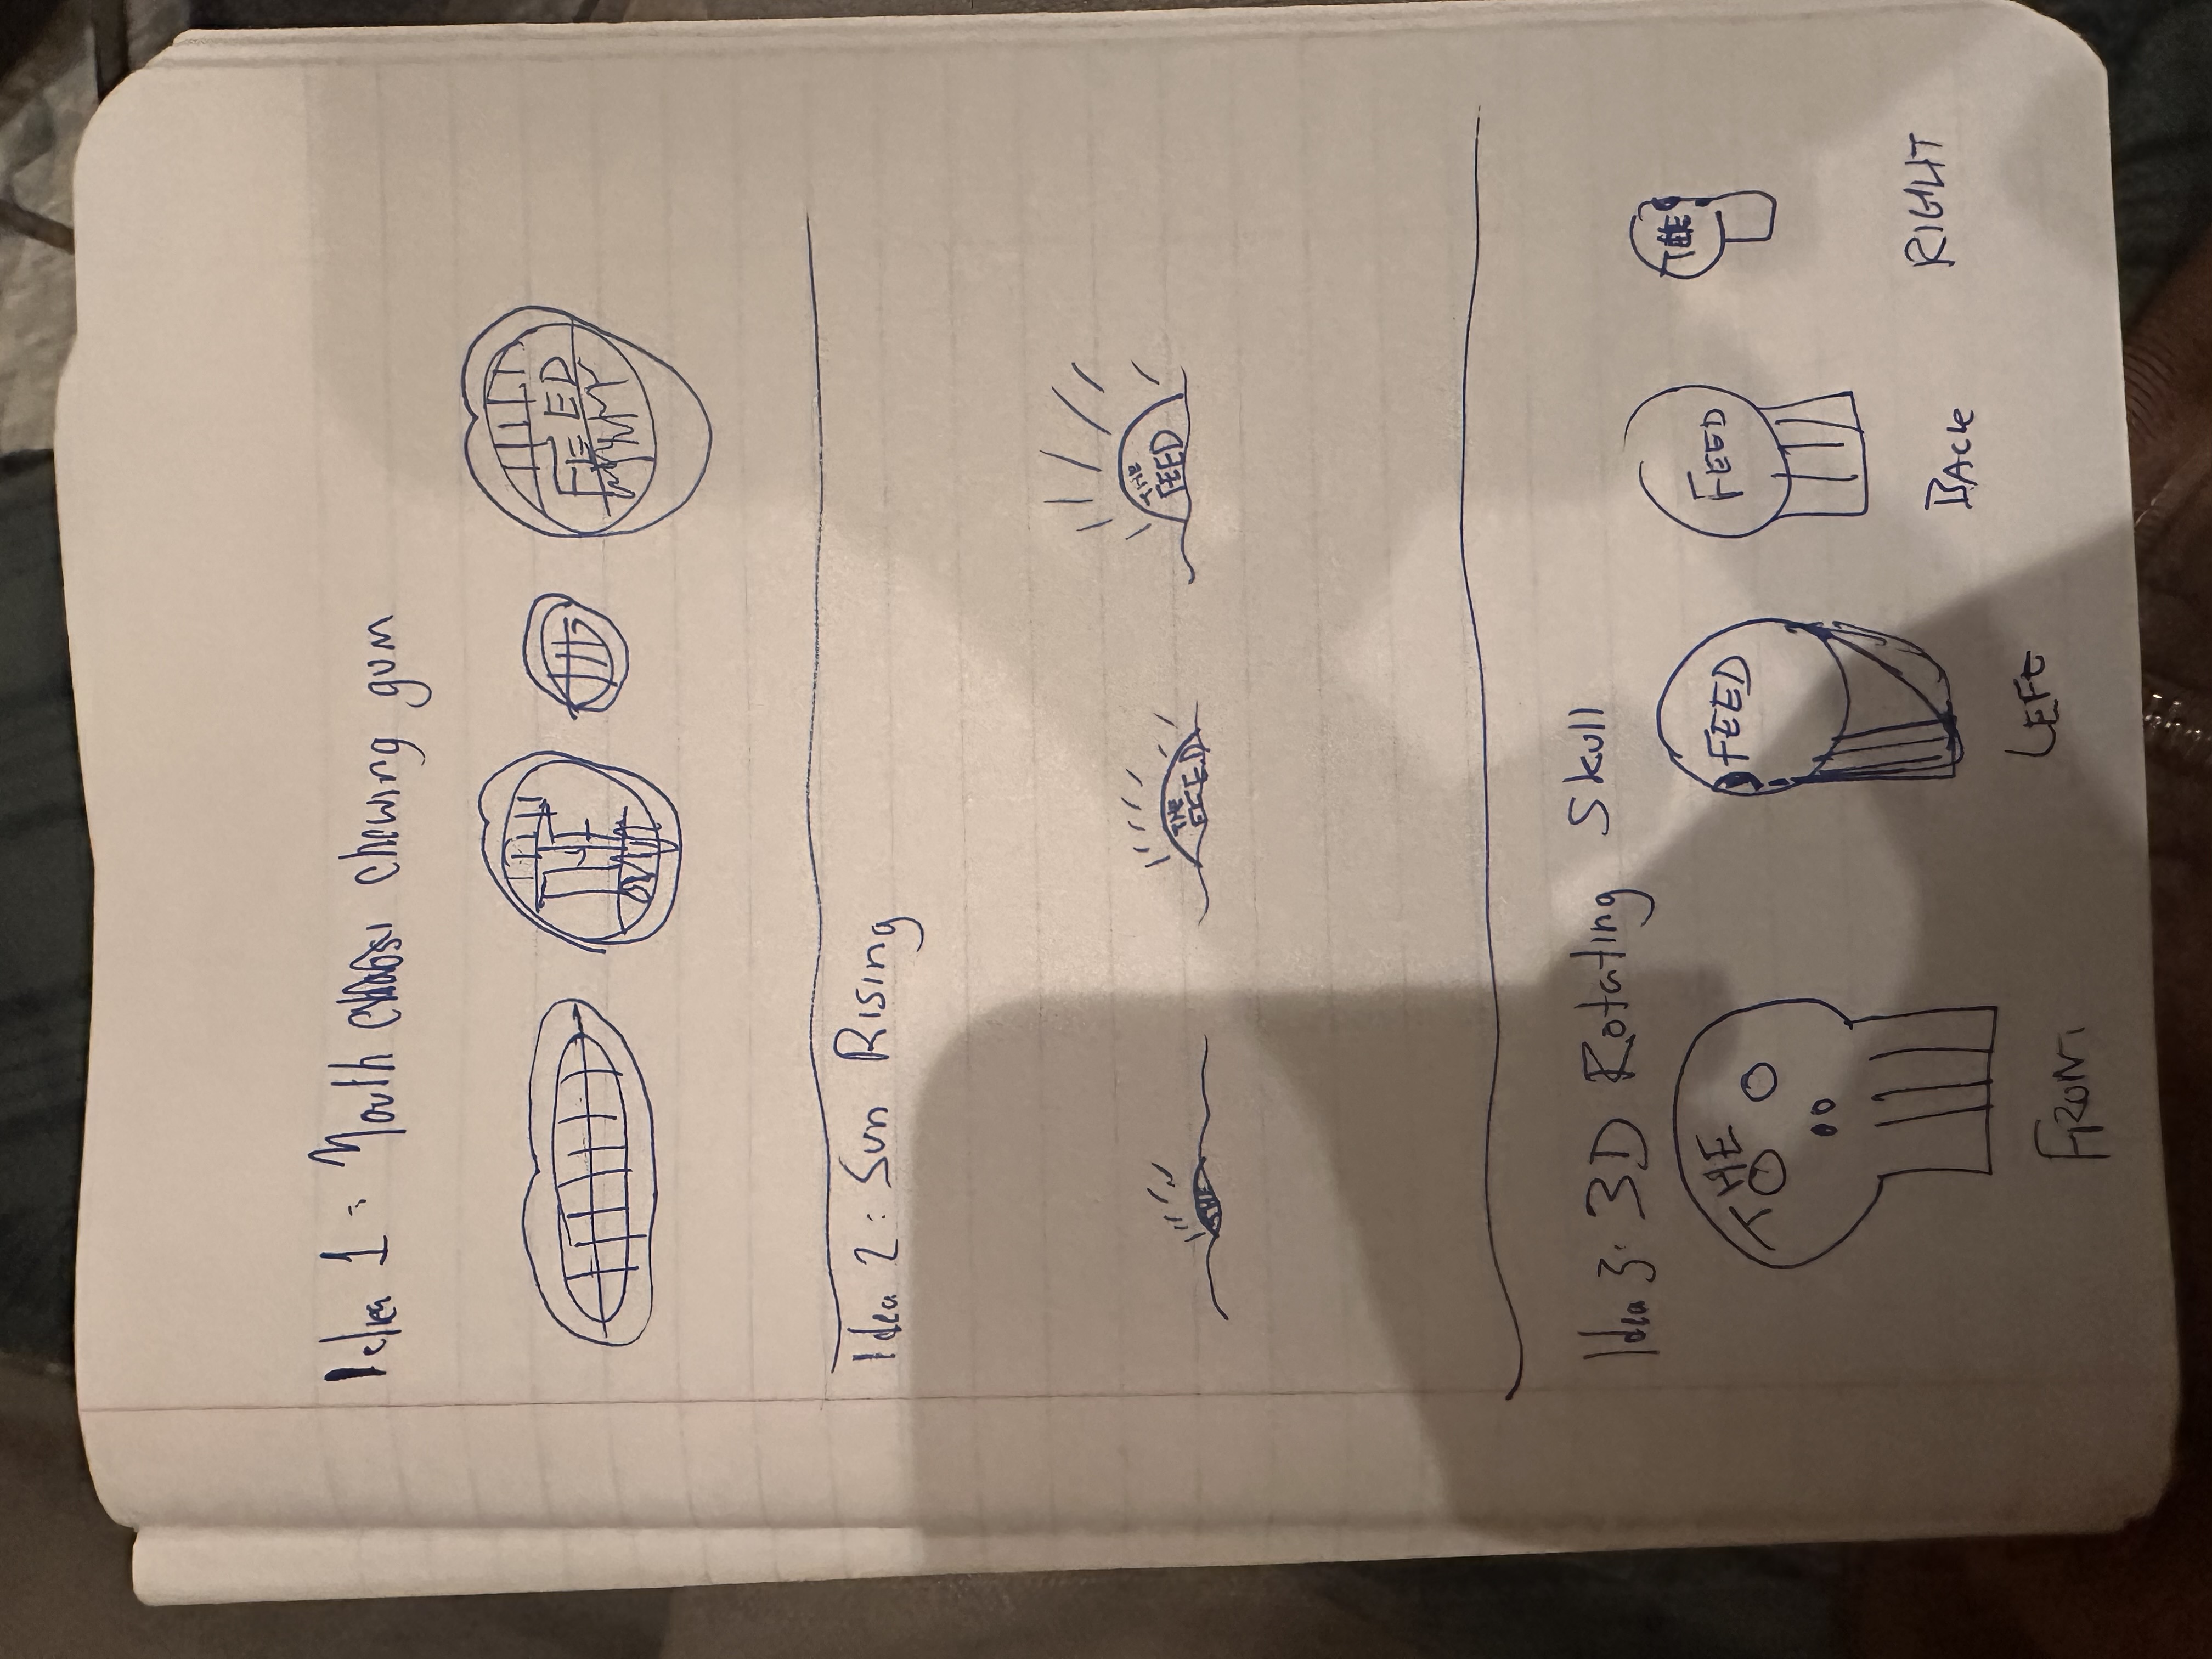 Idea 1: Mouth chewing gum
THE
FEED
Idea 2: Sun Rising
THE
THE
FEED
THE
FEED
Idea 3: 3D Rotating Skull
THE
FEED
FEED
THE
FRONT
LEFT
BACK
RIGHT